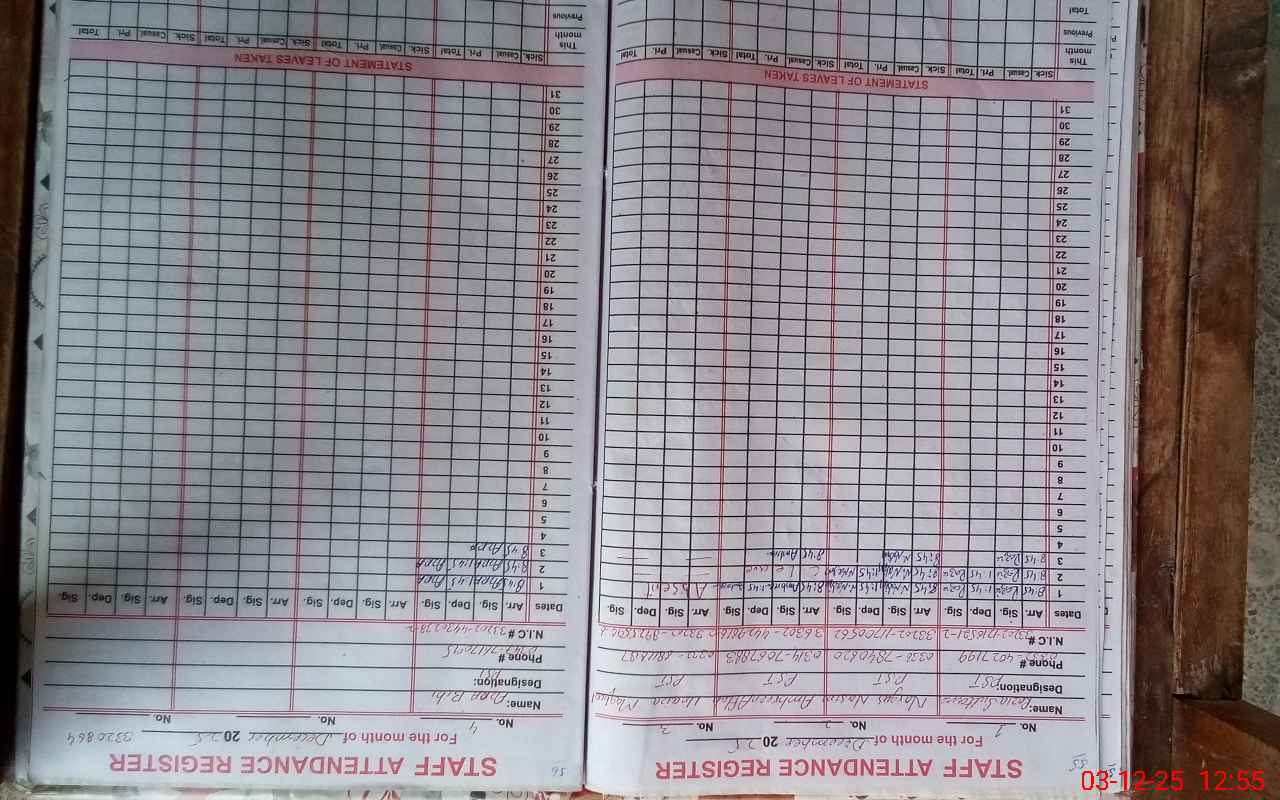 STAFF ATTENDANCE REGISTER
For the month of December 2025
No. 1 No. 2 No. 3
Name: Nargus Nasim
Designation: PST PST PST PST
Phone # 0336-7840820 0314-7067883
N.I.C #
Dates Arr. Sig. Dep. Sig. Arr. Sig. Dep. Sig. Arr. Sig. Dep. Sig. Arr. Sig. Dep. Sig.
1 8:45 1:45 8:45 1:45 8:45 1:45 Absent
2 8:45 1:45 8:45 1:45 Leave
3 8:45 8:45 8:45
4
5
6
7
8
9
10
11
12
13
14
15
16
17
18
19
20
21
22
23
24
25
26
27
28
29
30
31
STATEMENT OF LEAVES TAKEN
Sick. Casual. Pri. Total Sick. Casual. Pri. Total Sick. Casual. Pri. Total Sick. Casual. Pri. Total
This month
Previous
Total
55
STAFF ATTENDANCE REGISTER
56
For the month of December 2025 3320864
No. 4 No. No.
Name: Bibi
Designation: PST
Phone #
N.I.C #
Dates Arr. Sig. Dep. Sig. Arr. Sig. Dep. Sig. Arr. Sig. Dep. Sig. Arr. Sig. Dep. Sig.
1 8:45 1:45
2 8:45 1:45
3 8:45
4
5
6
7
8
9
10
11
12
13
14
15
16
17
18
19
20
21
22
23
24
25
26
27
28
29
30
31
STATEMENT OF LEAVES TAKEN
Sick. Casual. Pri. Total Sick. Casual. Pri. Total Sick. Casual. Pri. Total Sick. Casual. Pri. Total
This month
Previous
03-12-25 12:55